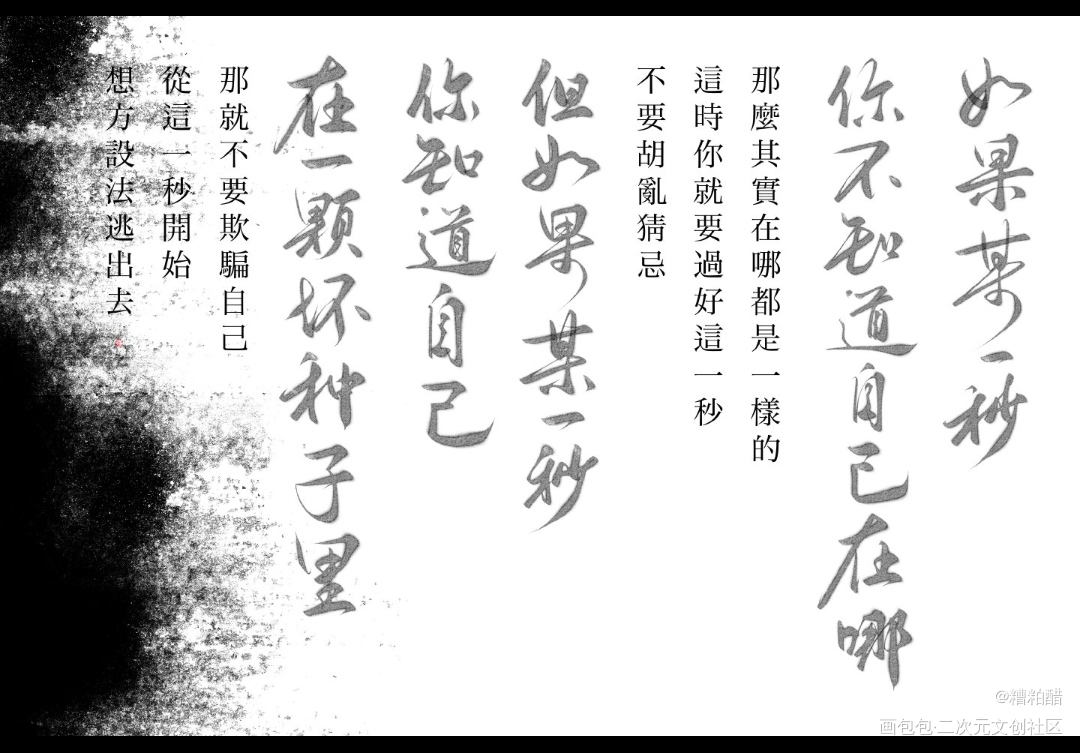 如果某一秒
你不知道自己在哪
那麼其實在哪都是一樣的
這時你就要過好這一秒
不要胡亂猜忌
但如果某一秒
你知道自己
在一颗坏种子里
那就不要欺騙自己
從這一秒開始
想方設法逃出去
@糟粕醋
画包包·二次元文创社区